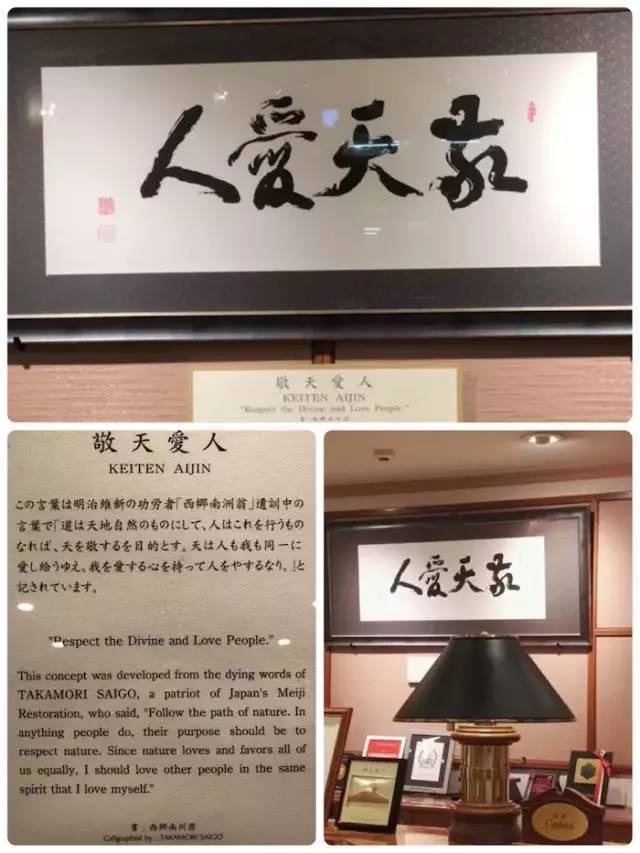 敬天愛人
敬天愛人
KEITEN AIJIN
"Respect the Divine and Love People"
敬天愛人
KEITEN AIJIN
この言葉は明治維新の功労者「西郷南洲翁」遺訓中の
言葉で「道は天地自然のものにして、人はこれを行うもの
なれば、天を敬するを目的とす。天は人も我も同一に
愛し給うゆえ、我を愛する心を持って人をやするなり。」と
記されています。
"Respect the Divine and Love People."
This concept was developed from the dying words of
TAKAMORI SAIGO, a patriot of Japan's Meiji
Restoration, who said, "Follow the path of nature. In
anything people do, their purpose should be to
respect nature. Since nature loves and favors all of
us equally, I should love other people in the same
spirit that I love myself."
書：西郷南洲翁
Caligraphed by : TAKAMORI SAIGO
敬天愛人
Cashier